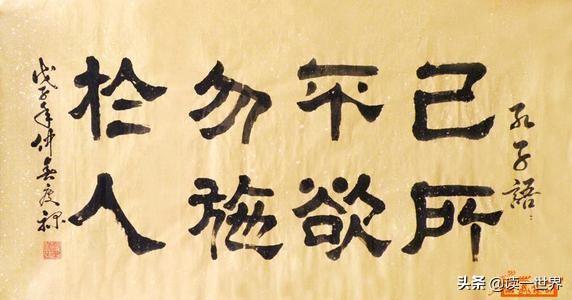 孔子語:
己所
不欲
勿施
於人
戊子年仲春
头条 @读一世界